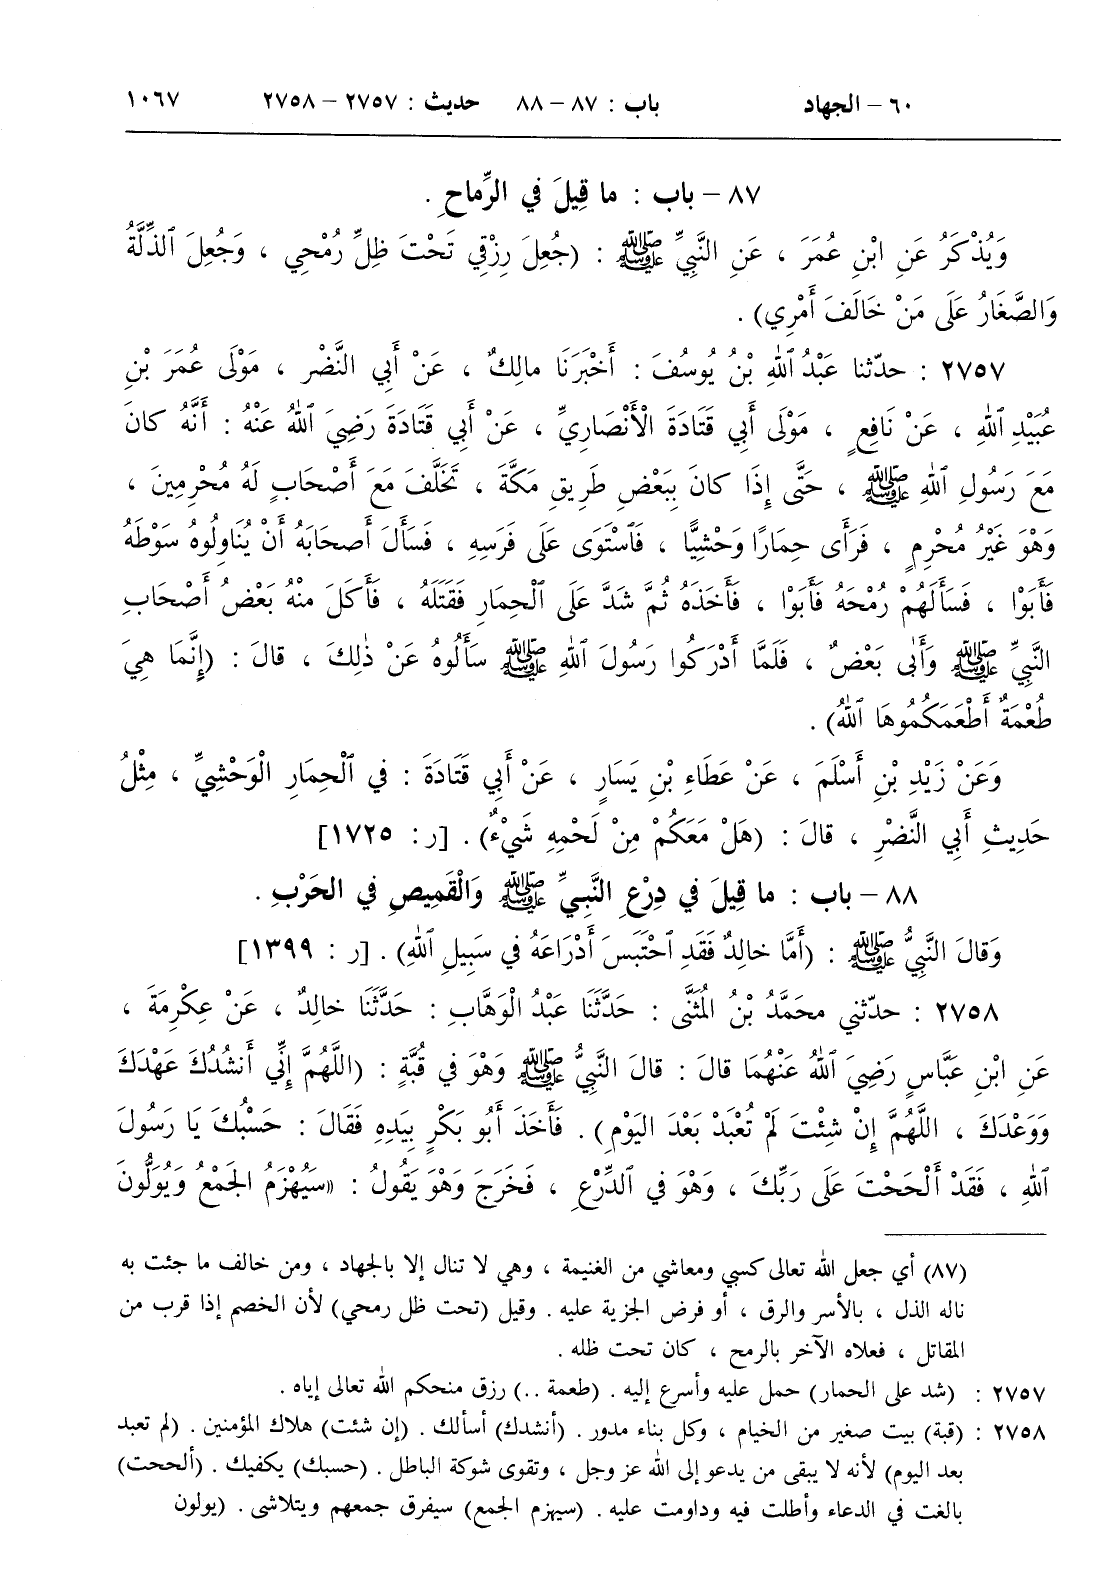 ٦٠ – الجهاد باب : ٨٧ – ٨٨ حديث : ٢٧٥٧ – ٢٧٥٨ ١٠٦٧
٨٧ – باب : ما قِيلَ في الرِّماحِ .
وَيُذْكَرُ عَنِ ابْنِ عُمَرَ ، عَنِ النَّبِيِّ ﷺ : (جُعِلَ رِزْقِي تَحْتَ ظِلِّ رُمْحِي ، وَجُعِلَ ٱلذِّلَّةُ
وَالصَّغَارُ عَلَى مَنْ خَالَفَ أَمْرِي) .
٢٧٥٧ : حدّثنا عَبْدُ ٱللهِ بْنُ يُوسُفَ : أَخْبَرَنَا مالِكٌ ، عَنْ أَبِي النَّضْرِ ، مَوْلَى عُمَرَ بْنِ
عُبَيْدِ ٱللهِ ، عَنْ نَافِعٍ ، مَوْلَى أَبِي قَتَادَةَ الْأَنْصَارِيِّ ، عَنْ أَبِي قَتَادَةَ رَضِيَ ٱللهُ عَنْهُ : أَنَّهُ كانَ
مَعَ رَسُولِ ٱللهِ ﷺ ، حَتَّى إِذَا كانَ بِبَعْضِ طَرِيقِ مَكَّةَ ، تَخَلَّفَ مَعَ أَصْحَابٍ لَهُ مُحْرِمِينَ ،
وَهْوَ غَيْرُ مُحْرِمٍ ، فَرَأَى حِمَارًا وَحْشِيًّا ، فَٱسْتَوَى عَلَى فَرَسِهِ ، فَسَأَلَ أَصحَابَهُ أَنْ يُنَاوِلُوهُ سَوْطَهُ
فَأَبَوْا ، فَسَأَلَهُمْ رُمْحَهُ فَأَبَوْا ، فَأَخَذَهُ ثُمَّ شَدَّ عَلَى ٱلْحِمَارِ فَقَتَلَهُ ، فَأَكَلَ مِنْهُ بَعْضُ أَصْحَابِ
النَّبِيِّ ﷺ وَأَبَى بَعْضٌ ، فَلَمَّا أَدْرَكُوا رَسُولَ ٱللهِ ﷺ سَأَلُوهُ عَنْ ذٰلِكَ ، قالَ : (إِنَّمَا هِيَ
طُعْمَةٌ أَطْعَمَكُمُوهَا ٱللهُ) .
وَعَنْ زَيْدِ بْنِ أَسْلَمَ ، عَنْ عَطَاءِ بْنِ يَسَارٍ ، عَنْ أَبِي قَتَادَةَ : في ٱلْحِمَارِ الْوَحْشِيِّ ، مِثْلُ
حَدِيثِ أَبِي النَّضْرِ ، قالَ : (هَلْ مَعَكُمْ مِنْ لَحْمِهِ شَيْءٌ) . [ر : ١٧٢٥]
٨٨ – باب : ما قِيلَ في دِرْعِ النَّبِيِّ ﷺ وَالْقَمِيصِ في الحَرْبِ .
وَقالَ النَّبِيُّ ﷺ : (أَمَّا خالِدٌ فَقَدِ ٱحْتَبَسَ أَدْرَاعَهُ في سَبِيلِ ٱللهِ) . [ر : ١٣٩٩]
٢٧٥٨ : حدّثني محَمَّدُ بْنُ المُثَنَّى : حَدَّثَنَا عَبْدُ الْوَهَّابِ : حَدَّثَنَا خالِدٌ ، عَنْ عِكْرِمَةَ ،
عَنِ ابْنِ عَبَّاسٍ رَضِيَ ٱللهُ عَنْهُمَا قالَ : قالَ النَّبِيُّ ﷺ وَهْوَ في قُبَّةٍ : (اللَّهُمَّ إِنِّي أَنْشُدُكَ عَهْدَكَ
وَوَعْدَكَ ، اللَّهُمَّ إِنْ شِئْتَ لَمْ تُعْبَدْ بَعْدَ اليَوْمِ) . فَأَخَذَ أَبُو بَكْرٍ بِيَدِهِ فَقَالَ : حَسْبُكَ يَا رَسُولَ
ٱللهِ ، فَقَدْ أَلْحَحْتَ عَلَى رَبِّكَ ، وَهْوَ في ٱلدِّرْعِ ، فَخَرَجَ وَهْوَ يَقُولُ : «سَيُهْزَمُ الجَمْعُ وَيُوَلُّونَ
(٨٧) أي جعل الله تعالى كسبي ومعاشي من الغنيمة ، وهي لا تنال إلا بالجهاد ، ومن خالف ما جئت به
ناله الذل ، بالأسر والرق ، أو فرض الجزية عليه . وقيل (تحت ظل رمحي) لأن الخصم إذا قرب من
المقاتل ، فعلاه الآخر بالرمح ، كان تحت ظله .
٢٧٥٧ : (شد على الحمار) حمل عليه وأسرع إليه . (طعمة ..) رزق منحكم الله تعالى إياه .
٢٧٥٨ : (قبة) بيت صغير من الخيام ، وكل بناء مدور . (أنشدك) أسألك . (إن شئت) هلاك المؤمنين . (لم تعبد
بعد اليوم) لأنه لا يبقى من يدعو إلى الله عز وجل ، وتقوى شوكة الباطل . (حسبك) يكفيك . (ألححت)
بالغت في الدعاء وأطلت فيه وداومت عليه . (سيهزم الجمع) سيفرق جمعهم ويتلاشى . (يولون